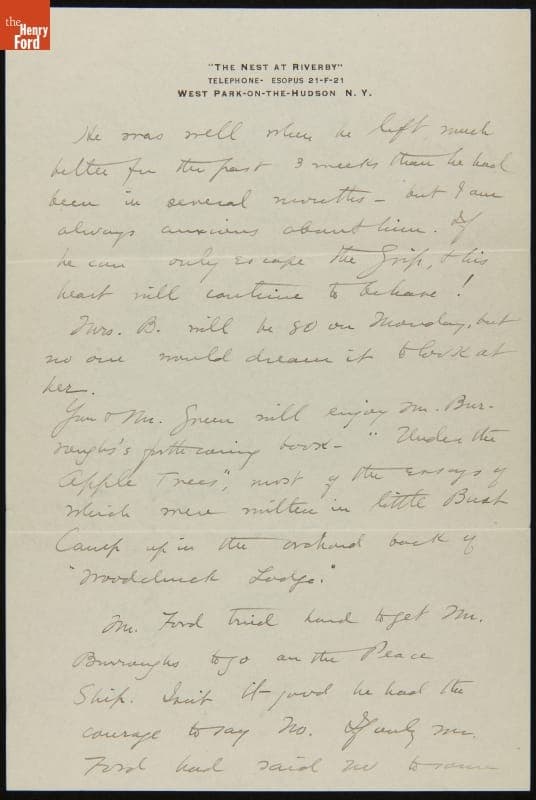 the
Henry
Ford
"THE NEST AT RIVERBY"
TELEPHONE- ESOPUS 21-F-21
WEST PARK-ON-THE-HUDSON N. Y.
He was well when he left, much
better for the past 3 weeks than he had
been in several months - but I am
always anxious about him. If
he can only escape the Grip, & his
heart will continue to behave!
Mrs. B. will be 80 on Monday, but
no one would dream it to look at
her.
You & Mr. Green will enjoy Mr. Bur-
roughs's forthcoming book - "Under the
Apple Trees", most of the essays of
which were written in little Bush
Camp up in the orchard back of
"Woodchuck Lodge."
Mr. Ford tried hard to get Mr.
Burroughs to go on the Peace
Ship. Isn't it good he had the
courage to say No. If only Mr.
Ford had said no to some